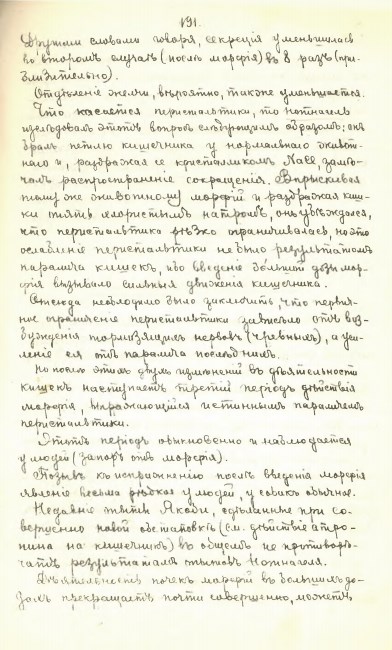 191.
Другими словами говоря, секрецiя уменьшилась
во второмъ случаѣ (послѣ морфiя) въ 8 разъ (при-
близительно).
Отдѣленiе желчи, вѣроятно, также уменьшается.
Что касается перистальтики, то Нотнагель
изслѣдовалъ этотъ вопросъ слѣдующимъ образомъ: онъ
бралъ петлю кишечника у нормальнаго живот-
наго и, раздражая ее кристалликомъ NaCl, замѣ-
чалъ распространенiе сокращенiя. Впрыскивая
тому же животному морфiй и раздражая киш-
ки опять хлористымъ натромъ, онъ убѣждался,
что перистальтика рѣзко ограничивалась, но это
ослабленiе перистальтики не было результатомъ
паралича кишекъ, ибо введенiе большой дозы мор-
фiя вызывало сильныя движенiя кишечника.
Отсюда необходимо было заключить, что первич-
ное ограниченiе перистальтики зависѣло отъ воз-
бужденiя тормозящихъ нервовъ (чревныхъ), а уси-
ленiе ея отъ паралича послѣднихъ.
Но послѣ этихъ двухъ измѣненiй въ дѣятельности
кишекъ наступаетъ третiй перiодъ дѣйствiя
морфiя, выражающiйся истиннымъ параличемъ
перистальтики.
Этотъ перiодъ обыкновенно и наблюдается
у людей (запоръ отъ морфiя).
Позывъ къ испражненiю послѣ введенiя морфiя
явленiе весьма рѣдкое у людей, у собакъ обычное.
Недавнiе опыты Якоби, сдѣланные при со-
вершенно новой обстановкѣ (см. дѣйствiе атро-
пина на кишечникъ) въ общемъ не противорѣ-
чатъ результатамъ опытовъ Нотнагеля.
Дѣятельность почекъ морфiй въ большихъ до-
захъ прекращаетъ почти совершенно, можетъ